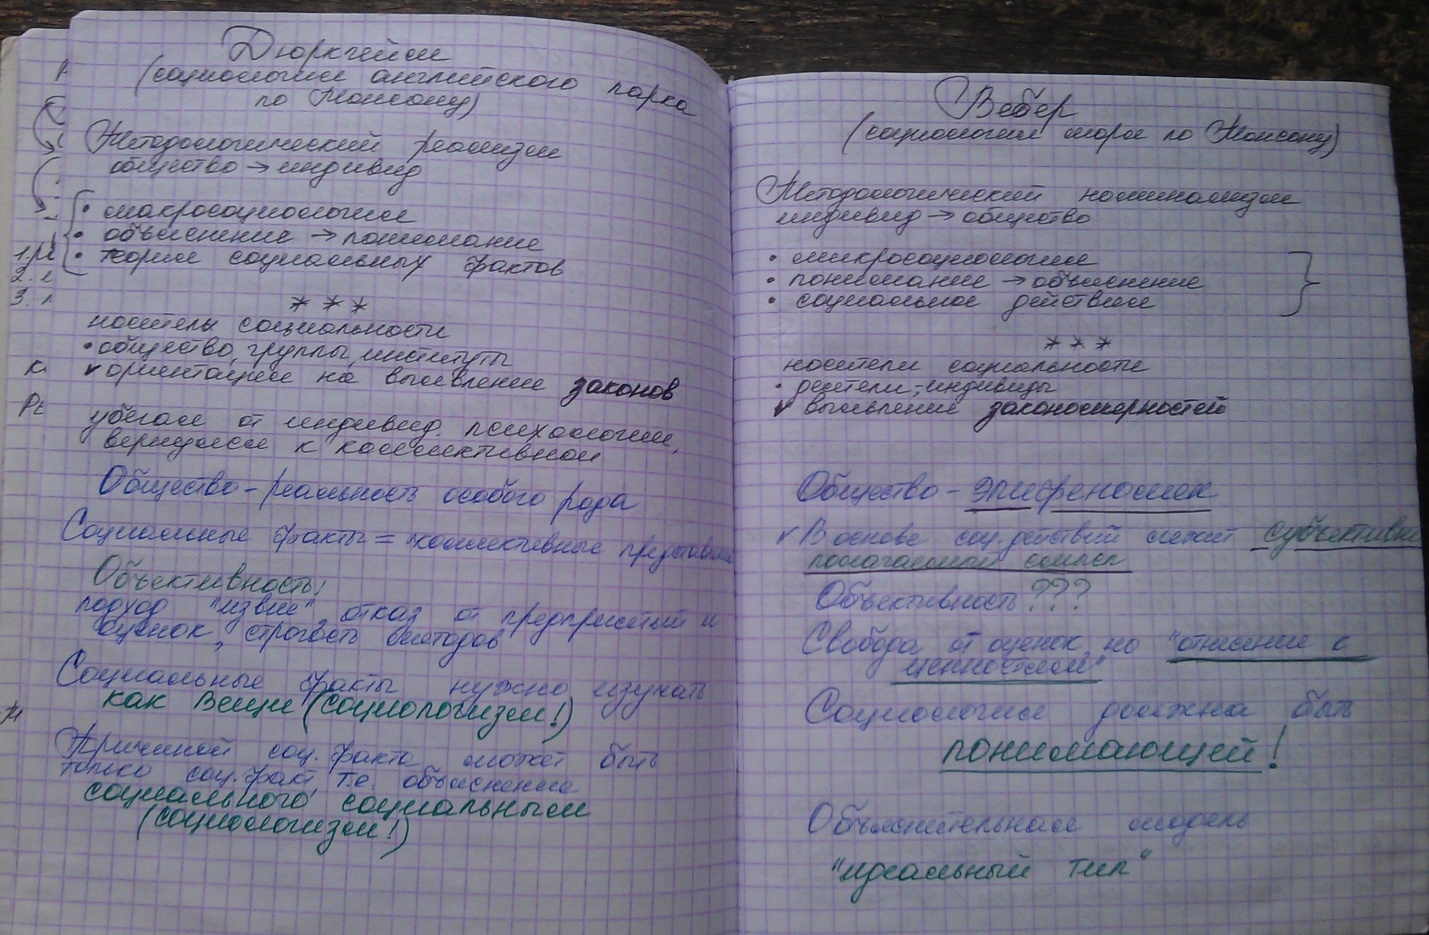 Дюркгейм
(социология английского парка
по Монсону)
Методологический реализм
общество → индивид
• макросоциология
• объяснение → понимание
• теория социальных фактов
1.
2.
3.
* * *
носитель социальности
• общество, группы, институты
✓ ориентация на выявление законов
убегая от индивид. психологии,
вернулся к коллективной
Общество - реальность особого рода
Социальные факты = коллективные представления
Объективность!
подход "извне", отказ от предпонятий и
оценок, строгость методов
Социальные факты нужно изучать
как вещи (социологизм!)
Причиной соц. факта может быть
только соц. факт, т.е. объяснение
социального социальным
(социологизм!)
Вебер
(социология моря по Монсону)
Методологический номинализм
индивид → общество
• микросоциология
• понимание → объяснение
• социальное действие
* * *
носители социальности
• деятели, индивиды
✓ выявление закономерностей
Общество - эпифеномен
✓ В основе соц. действий лежит субъективно
полагаемый смысл
Объективность???
Свобода от оценок, но "отнесение с
ценностям"
Социология должна быть
понимающей!
Объяснительная модель
"идеальный тип"